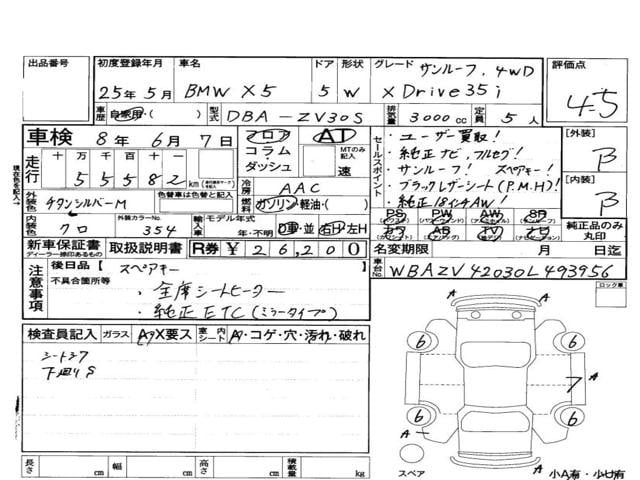 出品番号
初度登録年月 車名 ドア 形状 グレード 評価点
25年5月 BMW X5 5 W サンルーフ、4WD
X Drive35i 4.5
車歴 自家用・( ) 型式 DBA-ZV30S 排気量 3000cc 定員 5人
車検 8年6月7日
フロア コラム・ダッシュ AT MTのみ記入 速
走行 十 万 千 百 十 一
5 5 5 8 2 km
冷房 AAC
燃料 ガソリン・軽油・( )
外装色 チタンシルバーM 色替車は色替と記入
内装色 クロ 外装カラーNo. 354
輸入車 モデル年式 年・不明 D車・並 右H・左H
セールスポイント
・ユーザー買取!
・純正ナビ、フルセグ!
・サンルーフ! スペアキー!
・ブラックレザーシート(P.M.H)!
・純正18インチAW!
PS PW AW SR
カワ AB TV ナビ
[外装] B
[内装] B
純正品のみ丸印
新車保証書 取扱説明書 R券 ¥26,200
ディーラー捺印あるもの
名変期限 月 日迄
車台No. WBAZV42030L493956
現在色を記入
注意事項 後日品 スペアキー
不具合箇所等
・全席シートヒーター
・純正ETC(ミラータイプ)
ロック車
検査員記入 ガラス A・X要ス 室内シート A・コゲ・穴・汚れ・破れ
シートシワ
下廻りS
A
6 6
A
7
6 6
A A
A
スペア
小A有・小U有
長さ cm 幅 cm 高さ cm 積載量 kg